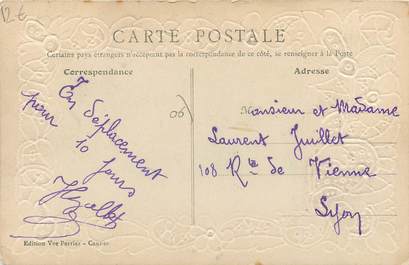 12 €
CARTE POSTALE
Certains pays étrangers n'acceptent pas la correspondance de ce côté, se renseigner à la Poste
Correspondance
Adresse
En déplacement
pour
10 Jours
06
Monsieur et Madame
Laurent Juillet
108 Rte de Vienne
Lyon
Edition Vve Perrier - Cannes